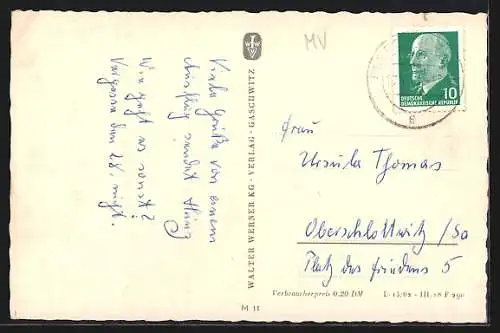 MV
DEUTSCHE
DEMOKRATISCHE REPUBLIK
10
Viele Grüße von einem
Ausflug sendet Heinz
Wie geht es sonst?
Vergesse den 28. nicht.
WALTER WERNER KG · VERLAG · GASCHWITZ
Frau
Ursula Thomas
Oberschlottwitz / Sa
Platz des Friedens 5
Verbraucherpreis 0.20 DM
M 11